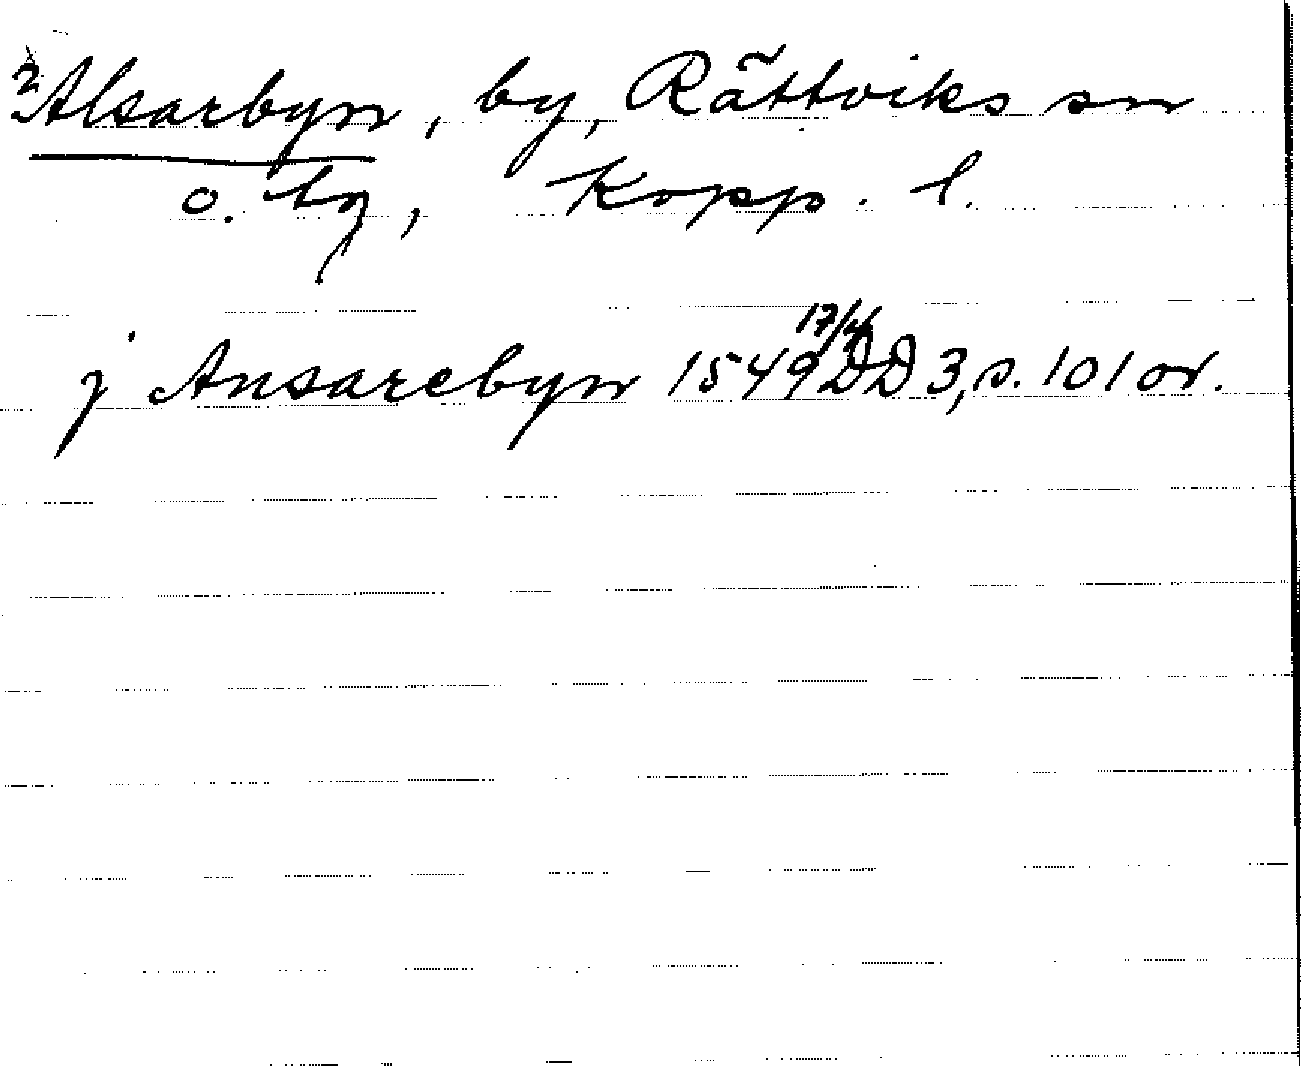 Alsarbyn, by, Rättviks sn
o. tg, Kopp. l.
j Ansarebyn 1549 17/4 DD 3, s. 101 or.